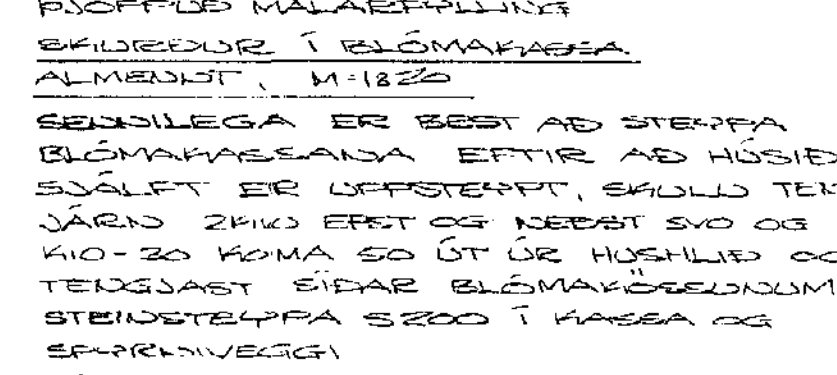 ÞJÖPPUÐ MALARFYLLING
SKURÐUR Í BLÓMAKASSA
ALMENNT, M=1:20
SENNILEGA ER BEST AÐ STEYPA
BLÓMAKASSANA EFTIR AÐ HÚSIÐ
SJÁLFT ER UPPSTEYPT, SKULU TEN
JÁRN 2K10 EFST OG NEÐST SVO OG
K10-20 KOMA 50 ÚT ÚR HÚSHLIÐ OG
TENGJAST SÍÐAR BLÓMAKÖSSUNUM
STEINSTEYPA S200 Í KASSA OG
SPYRNUVEGGI